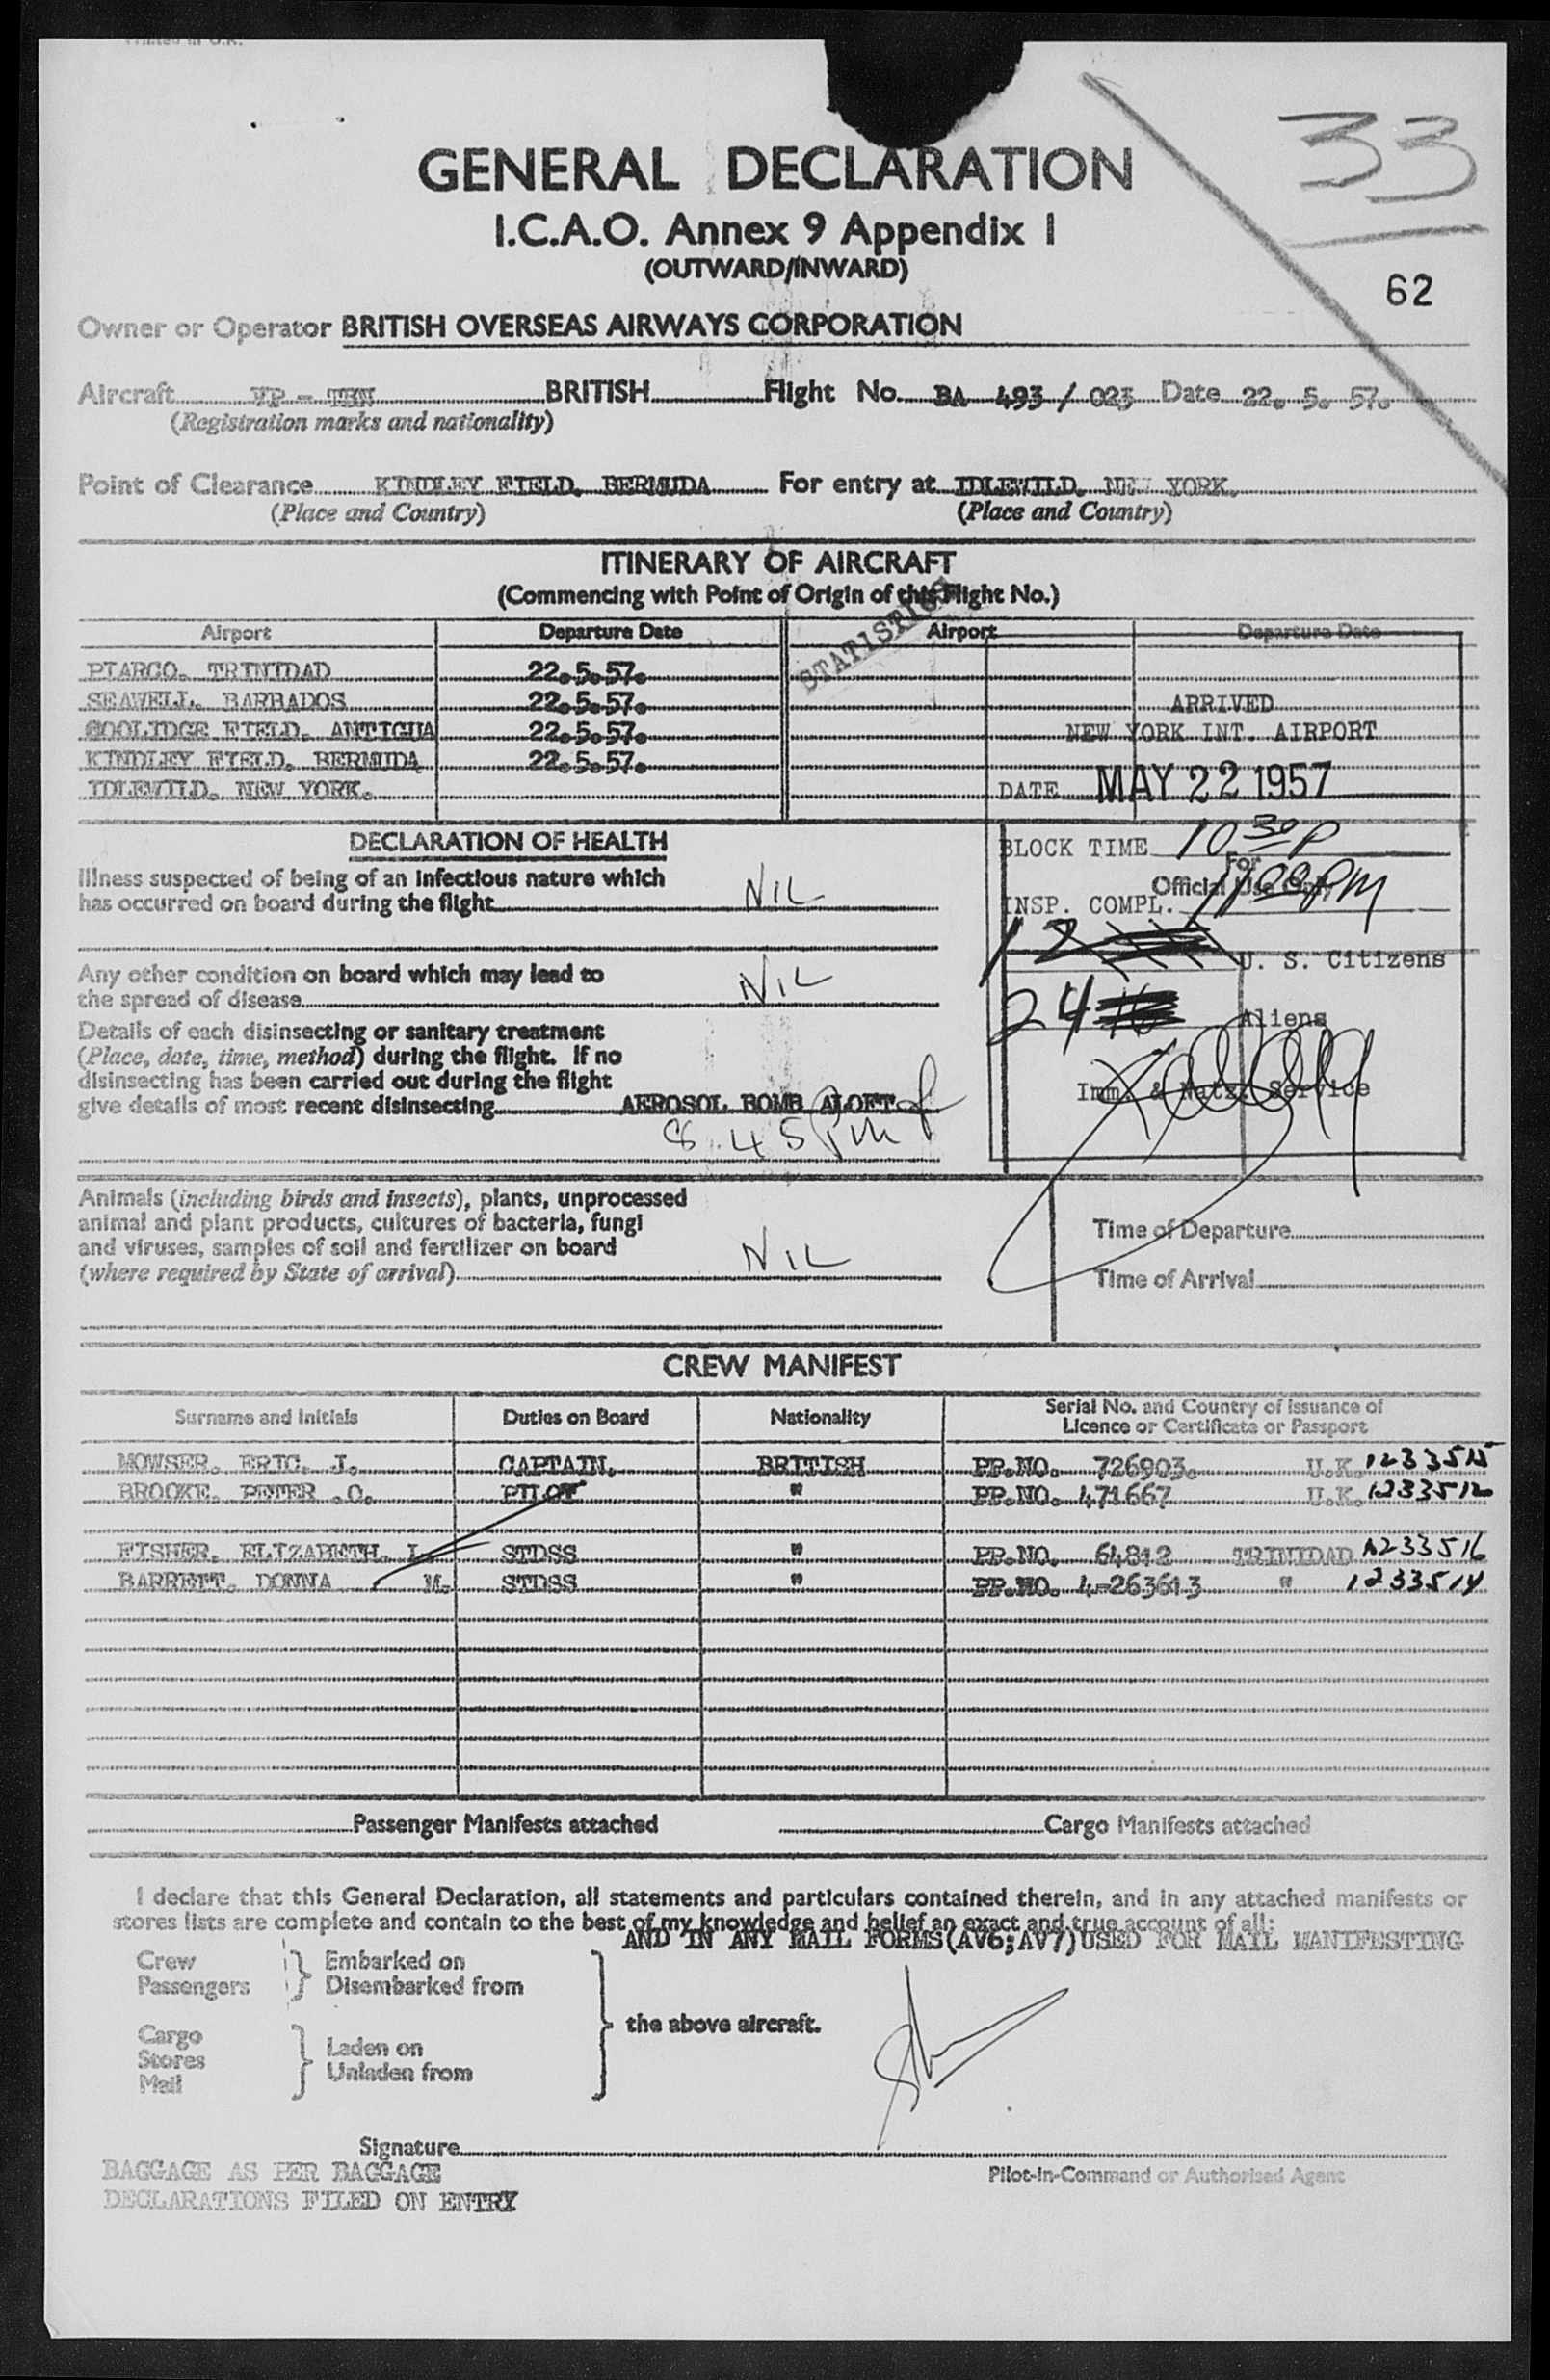 Printed in U.K.
33
GENERAL DECLARATION
I.C.A.O. Annex 9 Appendix 1
(OUTWARD/INWARD)
62
Owner or Operator BRITISH OVERSEAS AIRWAYS CORPORATION
Aircraft VP - TBN BRITISH Flight No. BA 493 / 023 Date 22. 5. 57.
(Registration marks and nationality)
Point of Clearance KINDLEY FIELD, BERMUDA For entry at IDLEWILD, NEW YORK.
(Place and Country) (Place and Country)
ITINERARY OF AIRCRAFT
(Commencing with Point of Origin of this Flight No.)
STATISTICS
Airport Departure Date Airport Departure Date
PIARCO. TRINIDAD 22.5.57.
SEAWELL. BARBADOS 22.5.57. ARRIVED
COOLIDGE FIELD. ANTIGUA 22.5.57. NEW YORK INT. AIRPORT
KINDLEY FIELD. BERMUDA 22.5.57.
IDLEWILD. NEW YORK. DATE MAY 22 1957
DECLARATION OF HEALTH
BLOCK TIME 10 30 P
For
Official Use Only
Illness suspected of being of an infectious nature which
has occurred on board during the flight NIL
INSP. COMPL. 11 00 PM
12 U. S. Citizens
Any other condition on board which may lead to
the spread of disease NIL
24 Aliens
Details of each disinsecting or sanitary treatment
(Place, date, time, method) during the flight. If no
disinsecting has been carried out during the flight
give details of most recent disinsecting AEROSOL BOMB ALOFT
8.45 PM
Imm. & Natz. Service
Animals (including birds and insects), plants, unprocessed
animal and plant products, cultures of bacteria, fungi
and viruses, samples of soil and fertilizer on board
(where required by State of arrival) NIL
Time of Departure
Time of Arrival
CREW MANIFEST
Surname and Initials Duties on Board Nationality Serial No. and Country of Issuance of
Licence or Certificate or Passport
MOWSER. ERIC. J. CAPTAIN. BRITISH PP.NO. 726903. U.K. 1233515
BROOKE. PETER .O. PILOT " PP.NO. 471667 U.K. 1233512
FISHER. ELIZABETH. L. STDSS " PP.NO. 64812 TRINIDAD 1233516
BARRETT. DONNA M. STDSS " PP.NO. 4-263613 " 1233514
Passenger Manifests attached Cargo Manifests attached
I declare that this General Declaration, all statements and particulars contained therein, and in any attached manifests or
stores lists are complete and contain to the best of my knowledge and belief an exact and true account of all:
AND IN ANY MAIL FORMS(AV6;AV7)USED FOR MAIL MANIFESTING
Crew } Embarked on
Passengers } Disembarked from
the above aircraft.
Cargo
Stores } Laden on
Mail } Unladen from
Signature
Pilot-in-Command or Authorised Agent
BAGGAGE AS PER BAGGAGE
DECLARATIONS FILED ON ENTRY